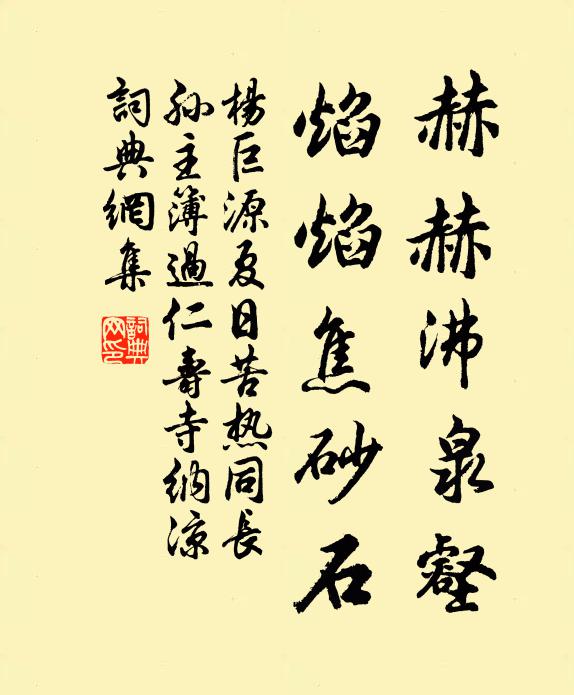 赫赫沸泉壑
焰焰焦砂石
楊巨源夏日苦热同長
孫主簿過仁壽寺納凉
詞典網集
詞典网印